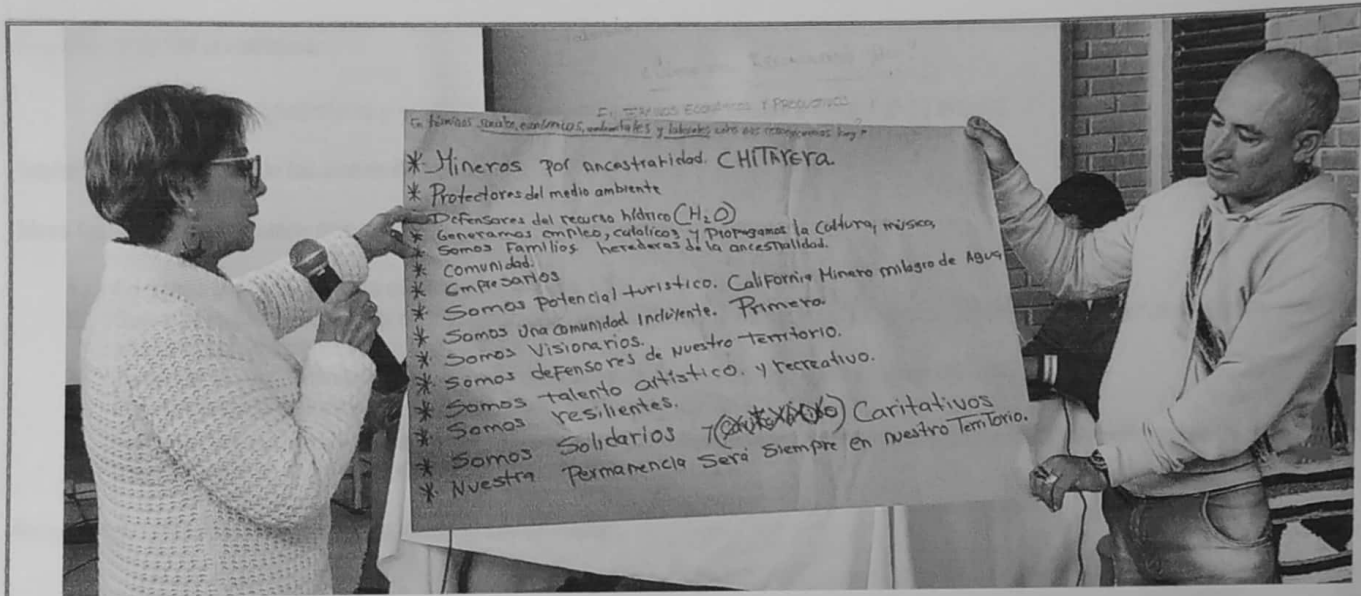 ¿Cómo nos reconocemos hoy?
En TÉRMINOS ECONÓMICOS Y PRODUCTIVOS
En términos sociales, económicos, ambientales y laborales, cómo nos reconocemos hoy?
* Mineros por ancestralidad. CHITARERA.
* Protectores del medio ambiente
Defensores del recurso hídrico (H₂O)
* Generamos empleo, católicos y Propagamos la Cultura, música,
* Somos Familias herederas de la ancestralidad.
* Comunidad.
* Empresarios
* Somos potencial turístico. California Minero milagro de Agua
* Somos Una comunidad Incluyente. Primero.
* Somos Visionarios.
* Somos defensores de Nuestro territorio.
* Somos talento artístico. y recreativo.
* Somos resilientes.
* Somos Solidarios y Caritativos
* Nuestra Permanencia Será Siempre en nuestro Territorio.